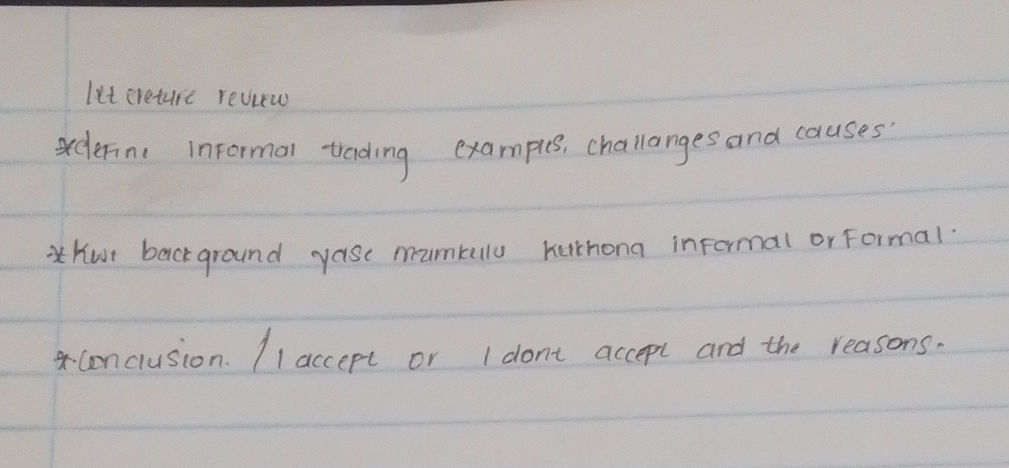 litereture review
*define informal trading examples, challanges and causes.
*Kwi background yase mzimkulu kukhona informal or formal.
*conclusion. / I accept or I dont accept and the reasons.